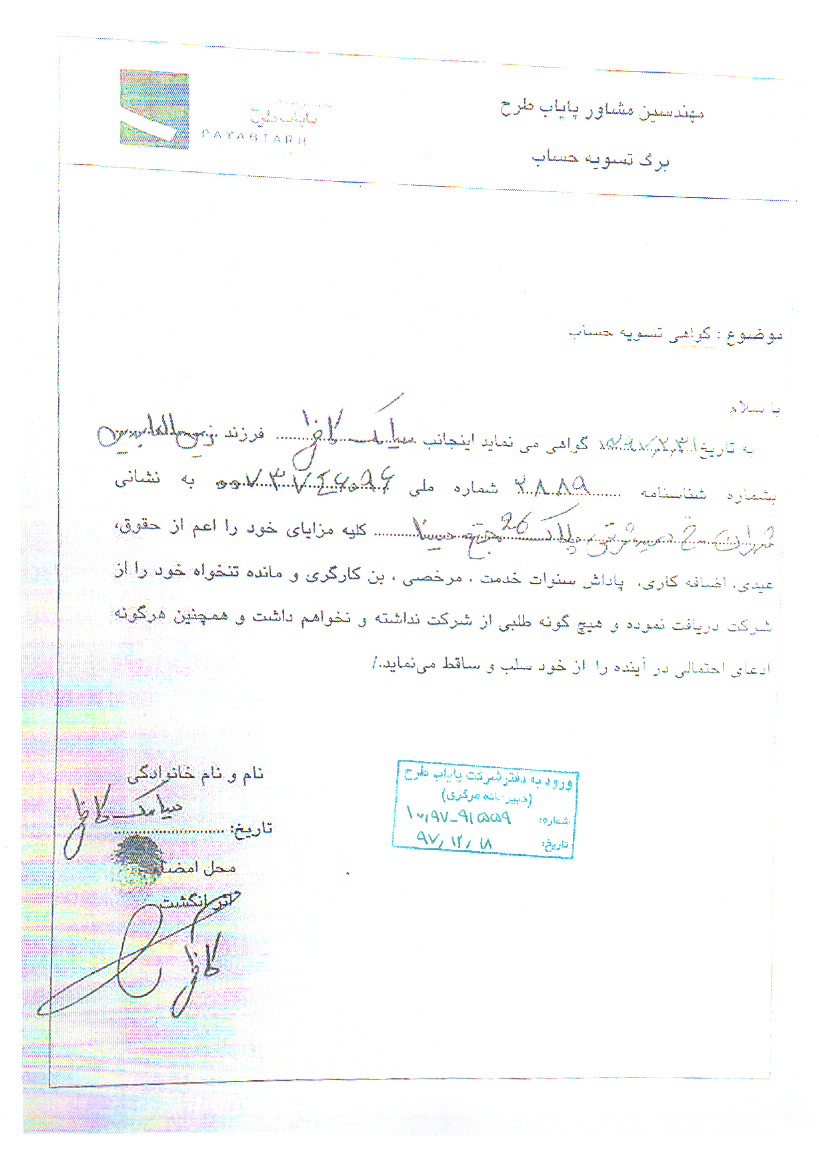 مهندسین مشاور پایاب طرح
برگ تسویه حساب
پایاب طرح
PAYABTARH
موضوع : گواهی تسویه حساب
با سلام
به تاریخ ۱۳۹۷٫۲٫۳۱ گواهی می نماید اینجانب سیامک کاظمی فرزند زین العابدین
بشماره شناسنامه ۲۸۸۹ شماره ملی ۰۰۷۳۷۴۶۰۹۶ به نشانی
تهران خ پلاک 26 مجتمع کلیه مزایای خود را اعم از حقوق،
عیدی، اضافه کاری، پاداش سنوات خدمت ، مرخصی ، بن کارگری و مانده تنخواه خود را از
شرکت دریافت نموده و هیچ گونه طلبی از شرکت نداشته و نخواهم داشت و همچنین هرگونه
ادعای احتمالی در آینده را از خود سلب و ساقط می‌نماید./
نام و نام خانوادگی
سیامک کاظمی
تاریخ: ........................
محل امضا
اثر انگشت
کاظمی
ورود به دفتر شرکت پایاب طرح
(دبیرخانه مرکزی)
شماره: ۱۰٫۹۷-۹۱۵۵۹
تاریخ: ۹۷٫۱۲٫۱۸